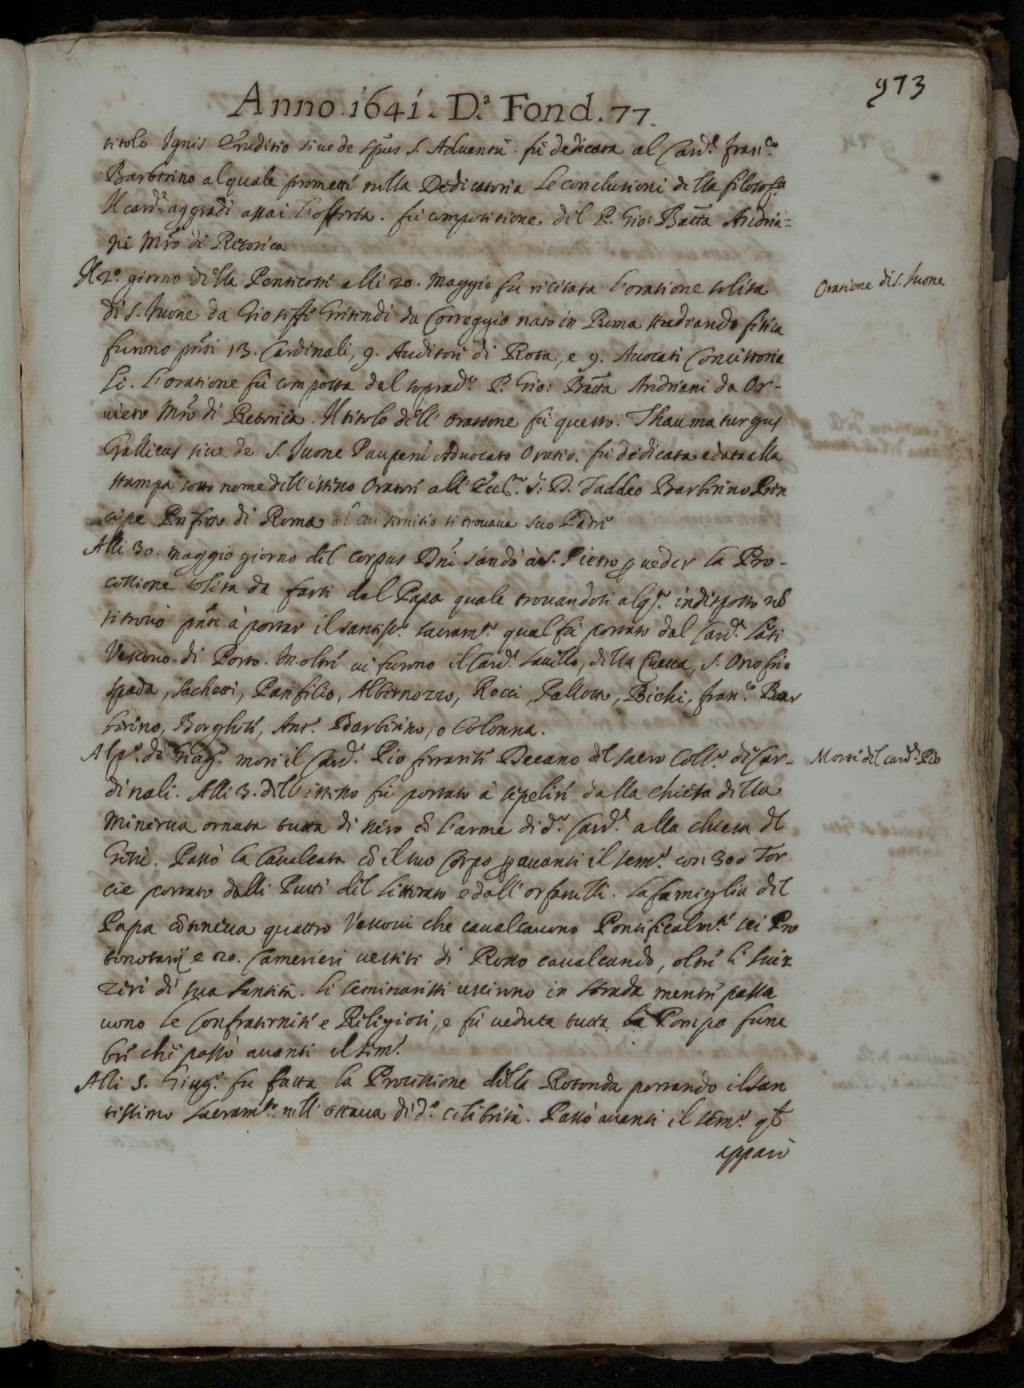 973
Anno. 1641. D.ª Fond. 77.
titolo Ignis Eruditio siue de Spűs S. Aduentu. fu dedicata al Card.l fran.co
Barberino al quale promette nella Dedicatoria le conclusioni de lla filosof.a
Il card.l aggradi assai l'offerta. fu compositione del P. Gio: Batta Andria=
ni Mrõ di Retorica
Il 2.º giorno della Pentecoste alli 20. Maggio fu recitata l'oratione solita
Oratione di S. Iuone
di S. Iuone da Gioseffe Grisendi da Correggio nato in Roma studiando fisica
furono pñti 13. Cardinali, 9. Auditori di Rota, e 9. Auocati Concistoria
li. L'oratione fu composta dal soprad.º P. Gio: Batta Andriani da Or-
uieto Mrõ di Retorica. Il titolo dell' oratione fu questo. Thaumaturgus
Gallicus siue de S. Iuone Pauperũ Aduocato Oratio. fu dedicata e data alla
stampa sotto nome dell'istesso Oratore all' Ecc.mo S. D. Taddeo Barberino Prin
cipe Prefetto di Roma al cui seruitio si trouaua suo Padre
Alli 30. maggio giorno del corpus Dñi s'andò à S. Pietro p ueder la Pro-
cessione solita da farsi dal Papa quale trouandosi alq.to indisposto nõ
si trouò pñte à portar il santiss.o sacram.to qual fu portato dal Card.l Lãti
Vescouo di Porto. Inoltre ui furono il Card.l Sauello, della Cueua, S. Onofrio
Spada, Sacheti, Panfilio, Albernozzo, Rocci, Pallotta, Bichi, fran.co Bar
berino, Borghese, Ant.o Barberino, e Colonna.
Al p.o di Giug.o morì il Card.l Pio ferrarese Decano del sacro Coll.o di Car-
Morte del card.l Pio
dinali. Alli 3. dell' istesso fu portato à sepelire dalla chiesa della
Minerua ornata tutta di nero cõ l'arme di d.o Card.l alla chiesa del
Giesù. Passò la Caualcata cõ il suo Corpo p auanti il sem.o con 300 Tor
cie portato dalli Putti del Litterato e dall' orfanelli. La famiglia del
Papa cõteneua quattro Vescoui che caualcauano Pontificalm.te sei Pro
tonotarij e 20. Camerieri uestiti di Rosso caualcando, oltre li Suiz
zeri di sua Santità. Li seminaristi uscirono in strada mentre passa
uono le Confraternite e Religiosi, e fu ueduta tutta la Pompa fune
bre che passò auanti il sem.o
Alli 5. Giug.o fu fatta la Processione della Rotonda portando il San
tissimo Sacram.to nell' ottaua di d.a celebrità. Passò auanti il sem.o
apparò